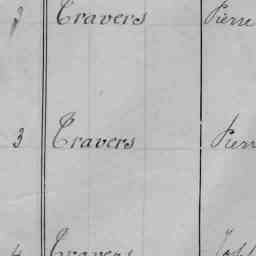 2 Travers Pierre
3 Travers Pierr
4 Travers Jos